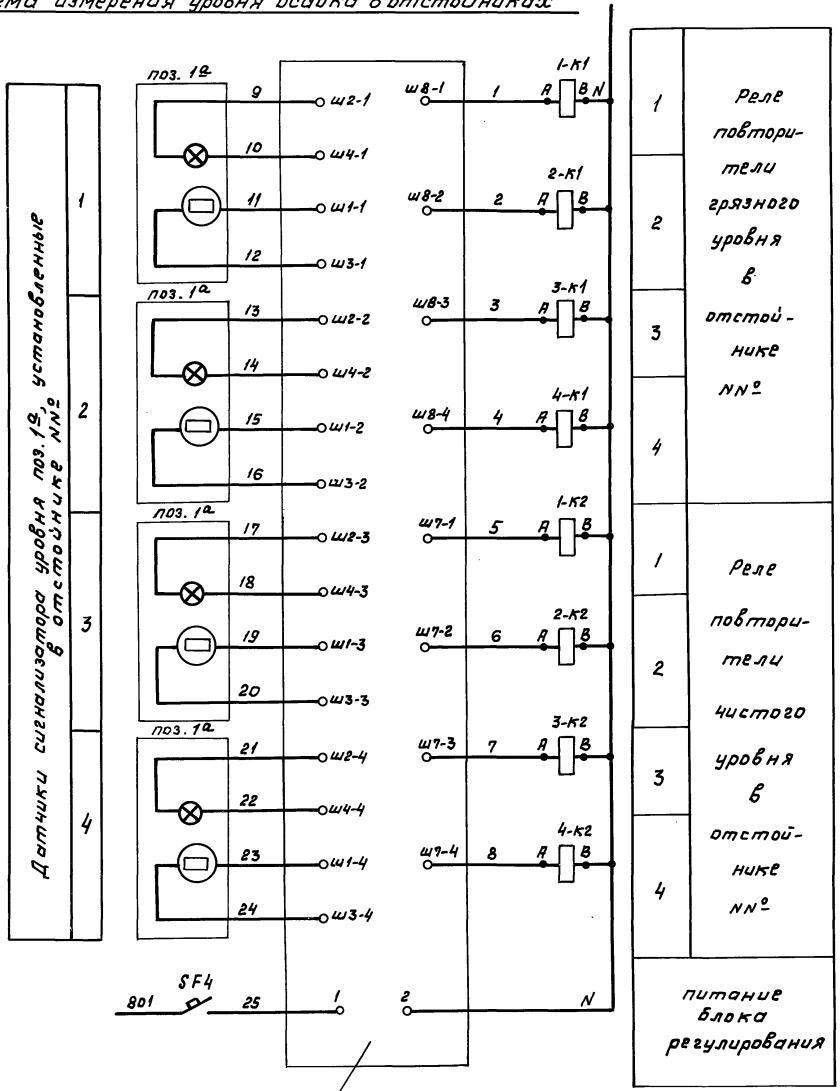 схема измерения уровня осадка в отстойниках
Датчики сигнализатора уровня поз. 1а, установленные
в отстойнике NNº
1
2
3
4
поз. 1а
9
10
11
12
ш2-1
ш4-1
ш1-1
ш3-1
поз. 1а
13
14
15
16
ш2-2
ш4-2
ш1-2
ш3-2
поз. 1а
17
18
19
20
ш2-3
ш4-3
ш1-3
ш3-3
поз. 1а
21
22
23
24
ш2-4
ш4-4
ш1-4
ш3-4
801
SF4
25
1
2
N
ш8-1 1 A 1-К1 B N
ш8-2 2 A 2-К1 B
ш8-3 3 A 3-К1 B
ш8-4 4 A 4-К1 B
ш7-1 5 A 1-К2 B
ш7-2 6 A 2-К2 B
ш7-3 7 A 3-К2 B
ш7-4 8 A 4-К2 B
1
2
3
4
Реле
повтори-
тели
грязного
уровня
в
отстой-
нике
NNº
1
2
3
4
Реле
повтори-
тели
чистого
уровня
в
отстой-
нике
NNº
питание
блока
регулирования